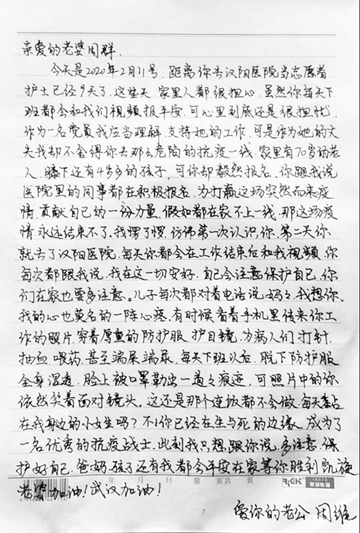 亲爱的老婆周群.
今天是2020年2月21号,距离你去汉阳医院当志愿者
护士已经9天了.这些天 家里人都很担心.虽然你每天下
班都会和我们视频报平安.可心里到底还是很担忧.
作为一名党员我应当理解支持她的工作.可是作为她的丈
夫我却不舍得你去那么危险的抗疫一线.家里有70岁的老
人.膝下还有4岁多的孩子.可你却毅然报名.你跟我说
医院里的同事都在积极报名.为打赢这场突然而来疫
情贡献自己的一份力量.假如都在家不上一线.那这场疫
情永远结束不了.我愣了愣.仿佛第一次认识你.第二天你
就去了汉阳医院.每天你都会在工作结束后和我视频.你
每次都跟我说.我在这一切安好.自己会注意保护自己.你
们在家也要多注意.儿子每次都对着电话说妈妈我想你.
我的心也莫名的一阵心疼.有时候看着手机里传来你工
作的照片.穿着厚重的防护服.护目镜.为病人们打针.
抽血.喂药.甚至端屎端尿.每天下班以后.脱下防护服
全身湿透.脸上被口罩勒出一道道痕迹.可照片中的你
依然笑着面对镜头.这还是那个连饭都不会做.每天黏
在我身边的小女生吗?不!你已经在生与死的边缘.成为了
一名优秀的抗疫战士.此刻我只想跟你说.多注意.保
护好自己.爸妈.孩子还有我都会平安在家等你胜利凯旋
老婆加油!武汉加油!
年 月 日 第 页共 页
爱你的老公:周